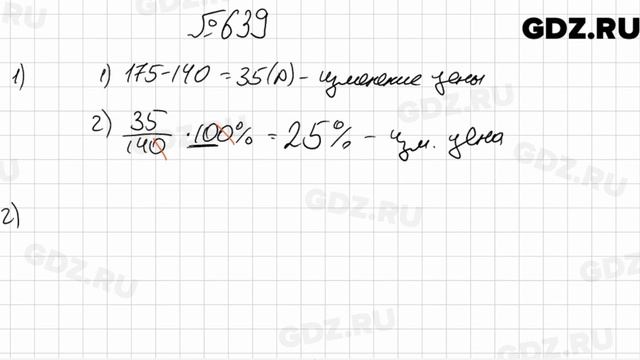 №639
GDZ.RU
1) 1) 175-140 = 35(р) - изменение цены
2) 35/140 · 100% = 25% - изм. цена
2)
GDZ.RU
GDZ.RU
GDZ.RU
GDZ.RU
GDZ.RU
GDZ.RU